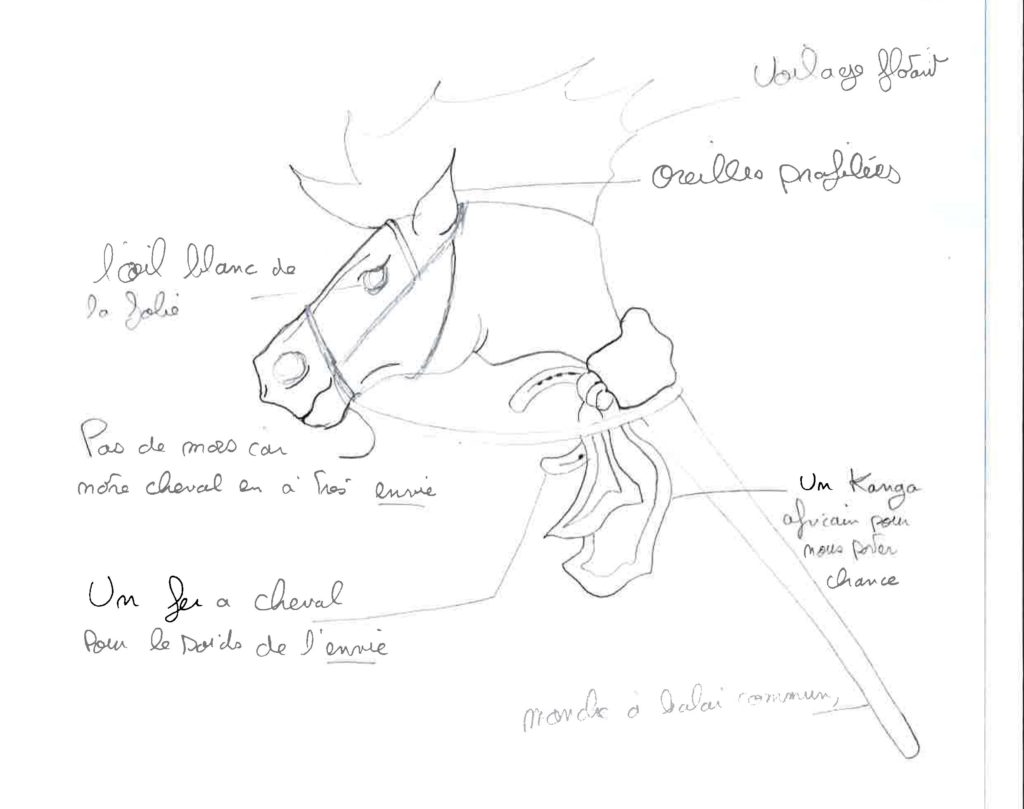 Voilage flottant
Oreilles profilées
l'œil blanc de
la folie
Pas de mors car
notre cheval en a très envie
Un Kanga
africain pour
nous porter
chance
Un fer a cheval
Pour le poids de l'envie
manche à balai commun,